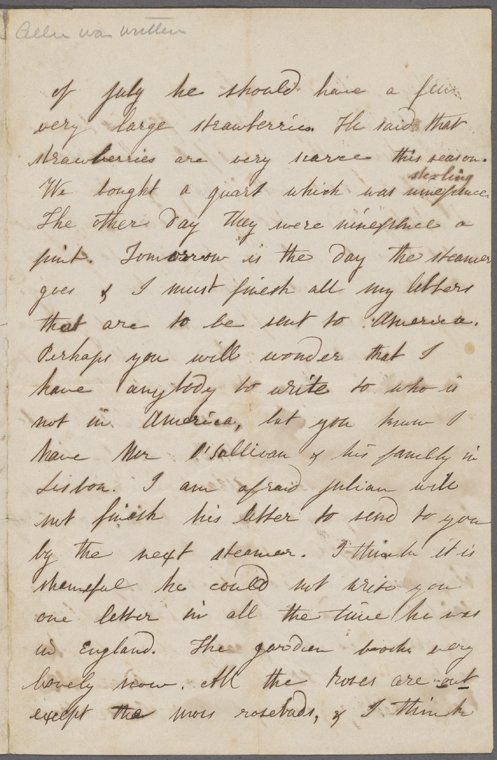 was written
of July he should have a few
very large strawberries. He said that
strawberries are very scarce this season.
We bought a quart which was
The other day they were ninepence a
pint. Tomorrow is the day the steamer
goes & I must finish all my letters
that are to be sent to America.
Perhaps you will wonder that I
have anybody to write to who is
not in America, but you know I
have Mr O'Sullivan & his family in
Lisbon. I am afraid Julian will
not finish his letter to send to you
by the next steamer. I think it is
shameful he could not write you
one letter in all the time he was
in England. The garden looks very
lovely now. All the roses are out
except the moss rosebuds, & I think